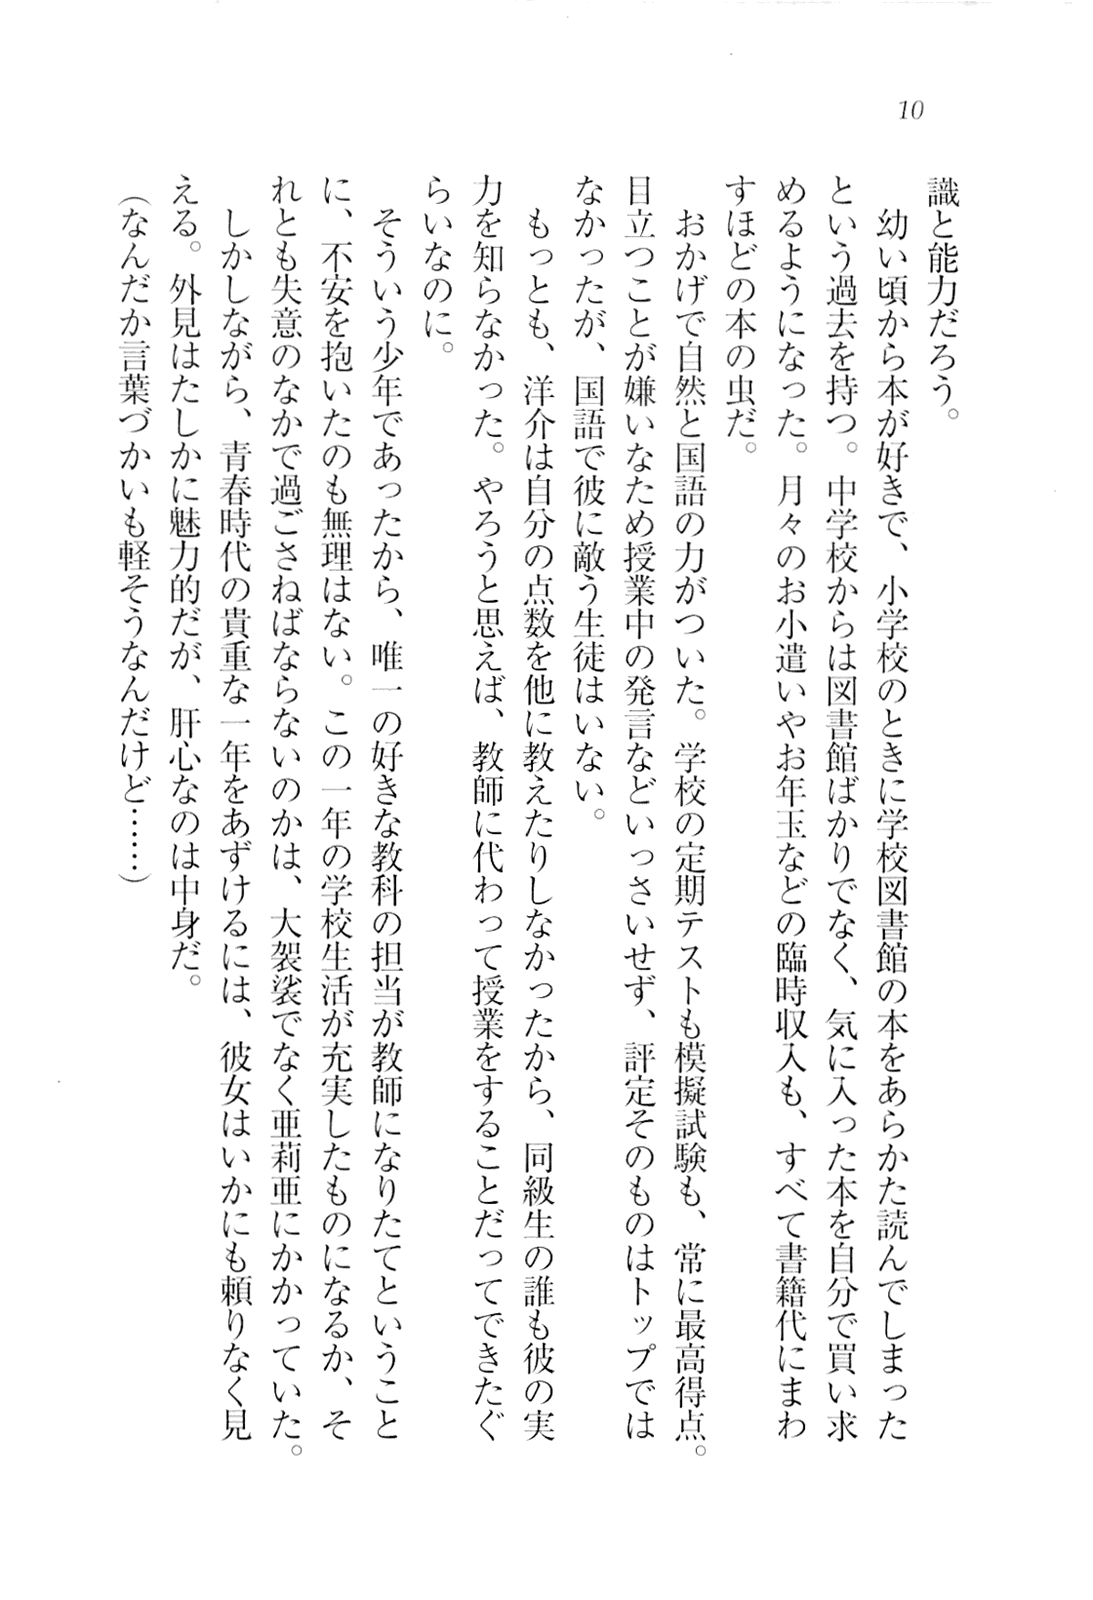 10
識と能力だろう。
幼い頃から本が好きで、小学校のときに学校図書館の本をあらかた読んでしまった
という過去を持つ。中学校からは図書館ばかりでなく、気に入った本を自分で買い求
めるようになった。月々のお小遣いやお年玉などの臨時収入も、すべて書籍代にまわ
すほどの本の虫だ。
おかげで自然と国語の力がついた。学校の定期テストも模擬試験も、常に最高得点。
目立つことが嫌いなため授業中の発言などいっさいせず、評定そのものはトップでは
なかったが、国語で彼に敵う生徒はいない。
もっとも、洋介は自分の点数を他に教えたりしなかったから、同級生の誰も彼の実
力を知らなかった。やろうと思えば、教師に代わって授業をすることだってできたぐ
らいなのに。
そういう少年であったから、唯一の好きな教科の担当が教師になりたてということ
に、不安を抱いたのも無理はない。この一年の学校生活が充実したものになるか、そ
れとも失意のなかで過ごさねばならないのかは、大袈裟でなく亜莉亜にかかっていた。
しかしながら、青春時代の貴重な一年をあずけるには、彼女はいかにも頼りなく見
える。外見はたしかに魅力的だが、肝心なのは中身だ。
（なんだか言葉づかいも軽そうなんだけど……）